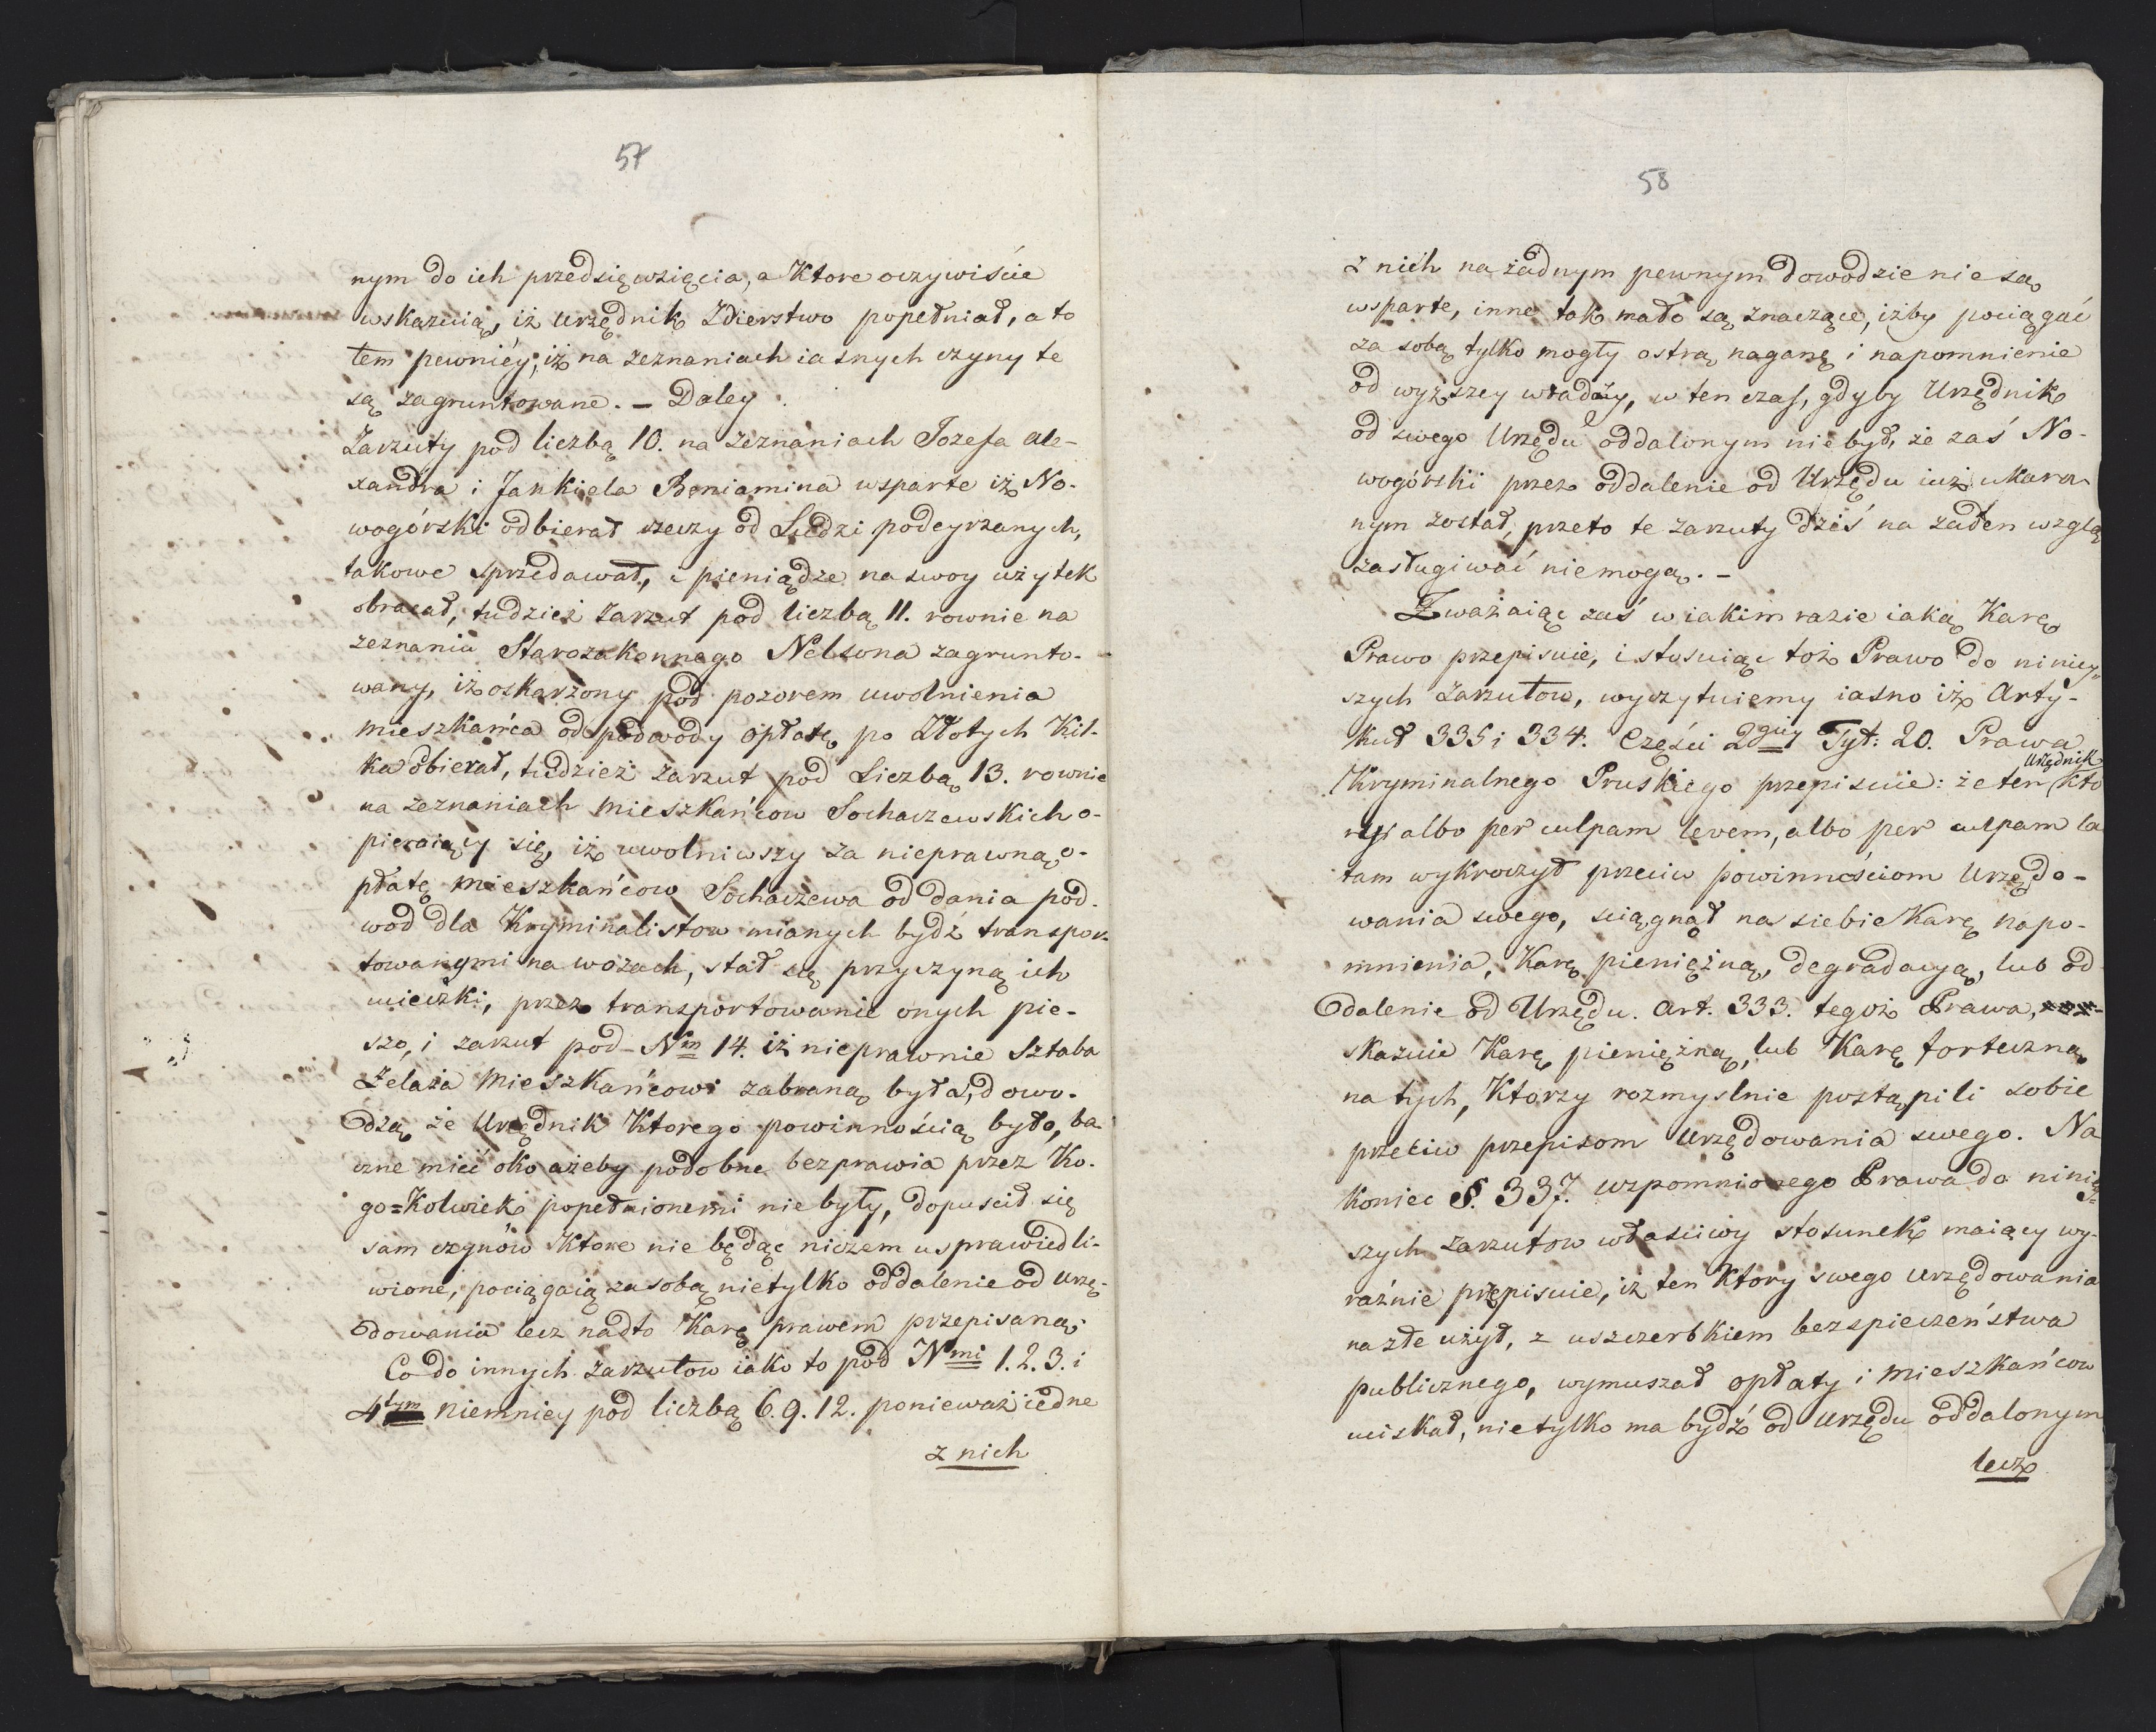 57
nym do ich przedsięwzięcia, a Ktore oczywiście
wskazuią, iż Urzędnik Zdierstwo popełniał, a to
tem pewniéy, iż na zeznaniach iasnych czyny te
są zagruntowane. – Daley
Zarzuty pod liczbą 10. na zeznaniach Jozefa Ale-
xandra i Jankiela Beniamina wsparte iż No-
wogórski odbierał rzeczy od Ludzi podeyrzanych,
takowe sprzedawał, i pieniądze na swoy użytek
obracał, tudzież Zarzut pod liczbą 11. rownie na
zeznaniu Starozakonnego Nelsona zagrunto-
wany, iż oskarżony pod pozorem uwolnienia
mieszkańca od podwody opłatę po Złotych Kil-
ka obierał, tudzież zarzut pod Liczbą 13. rownie
na zeznaniach Mieszkańcow Sochaczewskich o-
pieraiący się, iż uwolniwszy za nieprawną o-
płatę Mieszkańcow Sochaczewa od dania pod-
wod dla Kryminalistow mianych bydź transpor-
towanymi na wozach, stał się przyczyną ich
ucieczki, przez transportowanie onych pie-
szo, i zarzut pod Nm 14. iż nieprawnie Sztaba
Żelaza Mieszkańcowi zabraną była, dowo-
dzą że Urzędnik Ktorego powinnością było, ba-
czne mieć oko ażeby podobne bezprawia przez Ko-
go=Kolwiek popełnionemi nie były, dopuscił się
sam czynów Ktore nie będąc niczem usprawiedli-
wione, pociągaią za sobą nietylko oddalenie od Urzę-
dowania lecz nadto Karę prawem przepisaną.
Co do innych zarzutow iako to pod Nmi 1. 2. 3. i
4tym niemniey pod liczbą 6. 9. 12. ponieważ iedne
z nich
58
z nich na żadnym pewnym dowodzie nie są
wsparte, inne tak mało są znaczące, iżby pociągać
za sobą tylko mogły ostrą naganę i napomnienie
od wyższey władzy, w ten czas, gdyby Urzędnik
od swego Urzędu oddalonym nie był, że zaś No-
wogórski przez oddalenie od Urzędu iuż ukara-
nym został, przeto te zarzuty dziś na żaden wzglą
zasługiwać niemogą. –
Zważaiąc zaś w iakim razie iaką Karę
Prawo przepisuie, i stosuiąc toż Prawo do niniey-
szych zarzutow, wyczytuiemy iasno iż Arty-
kuł 335 i 334. Części 2giey Tyt: 20. Prawa
Kryminalnego Pruskiego przepisuie: że ten Urzędnik kto
ry albo per culpam levem, albo per culpam la
tam wykroczył przeciw powinnościom Urzędo-
wania swego, sciągnął na siebie Karę napo-
mnienia, Karę pieniężną, degradacyą, lub od
dalenie od Urzędu. Art. 333. tegoż Prawa,
skazuie Karę pieniężną, lub Karę forteczną
na tych, Ktorzy rozmyslnie postąpili sobie
przeciw przepisom Urzędowania swego. Na
koniec §. 337. wzpomnionego Prawa do niniey-
szych zarzutow właściwy stosunek maiący wy-
raźnie przepisuie, iż ten Ktory swego Urzędowania
na złe użył, z uszczerbkiem bezspieczeństwa
publicznego, wymuszał opłaty i Mieszkańcow
uciskał, nietylko ma bydź od Urzędu oddalonym
lecz